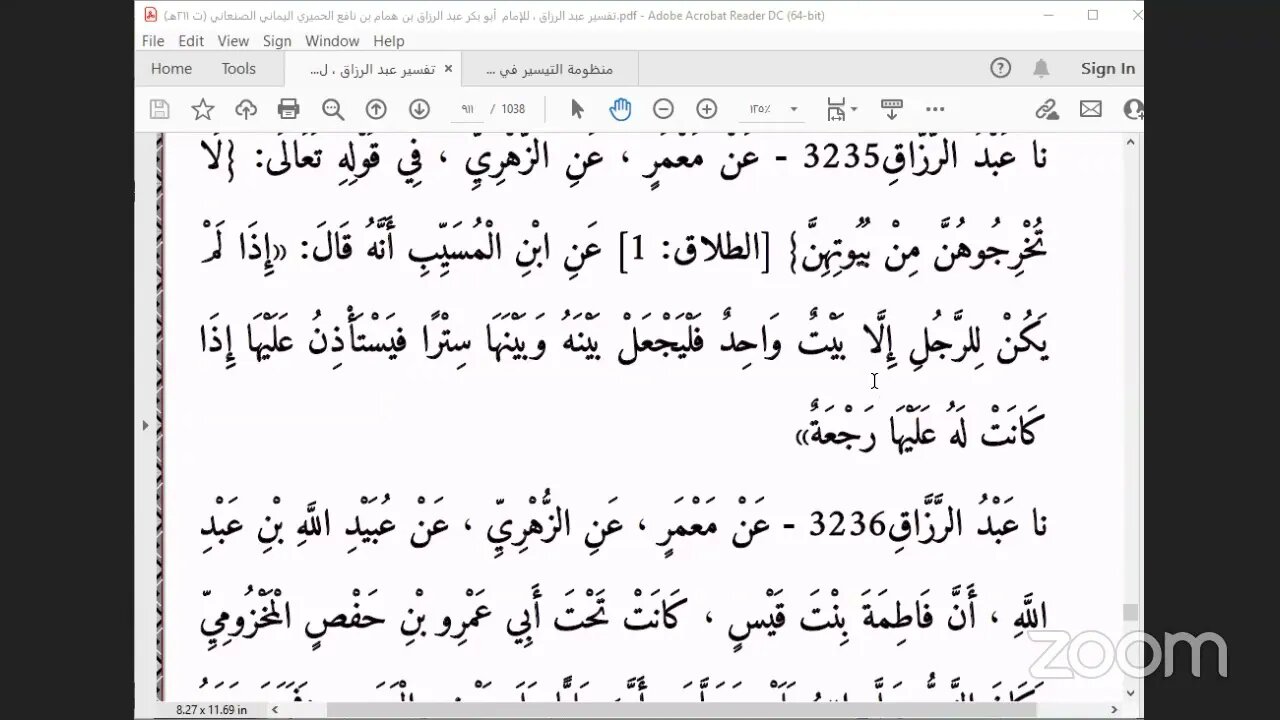 تفسير عبد الرزاق ، للإمام أبو بكر عبد الرزاق بن همام بن نافع الحميري اليماني الصنعاني (ت ٢١١هـ).pdf - Adobe Acrobat Reader DC (64-bit)
File Edit View Sign Window Help
Home Tools تفسير عبد الرزاق ، ل... × منظومة التيسير في ... Sign In
٩١١ / 1038 ١٢٥٪
نا عَبْدُ الرَّزَّاقِ3235 - عَنْ مَعْمَرٍ ، عَنِ الزُّهْرِيِّ ، فِي قَوْلِهِ تَعَالَى: {لَا
تُخْرِجُوهُنَّ مِنْ بُيُوتِهِنَّ} [الطلاق: 1] عَنِ ابْنِ الْمُسَيِّبِ أَنَّهُ قَالَ: «إِذَا لَمْ
يَكُنْ لِلرَّجُلِ إِلَّا بَيْتٌ وَاحِدٌ فَلْيَجْعَلْ بَيْنَهُ وَبَيْنَهَا سِتْرًا فَيَسْتَأْذِنُ عَلَيْهَا إِذَا
كَانَتْ لَهُ عَلَيْهَا رَجْعَةٌ»
نا عَبْدُ الرَّزَّاقِ3236 - عَنْ مَعْمَرٍ ، عَنِ الزُّهْرِيِّ ، عَنْ عُبَيْدِ اللَّهِ بْنِ عَبْدِ
اللَّهِ ، أَنَّ فَاطِمَةَ بِنْتَ قَيْسٍ ، كَانَتْ تَحْتَ أَبِي عَمْرِو بْنِ حَفْصٍ الْمَخْزُومِيِّ
zoom
8.27 x 11.69 in